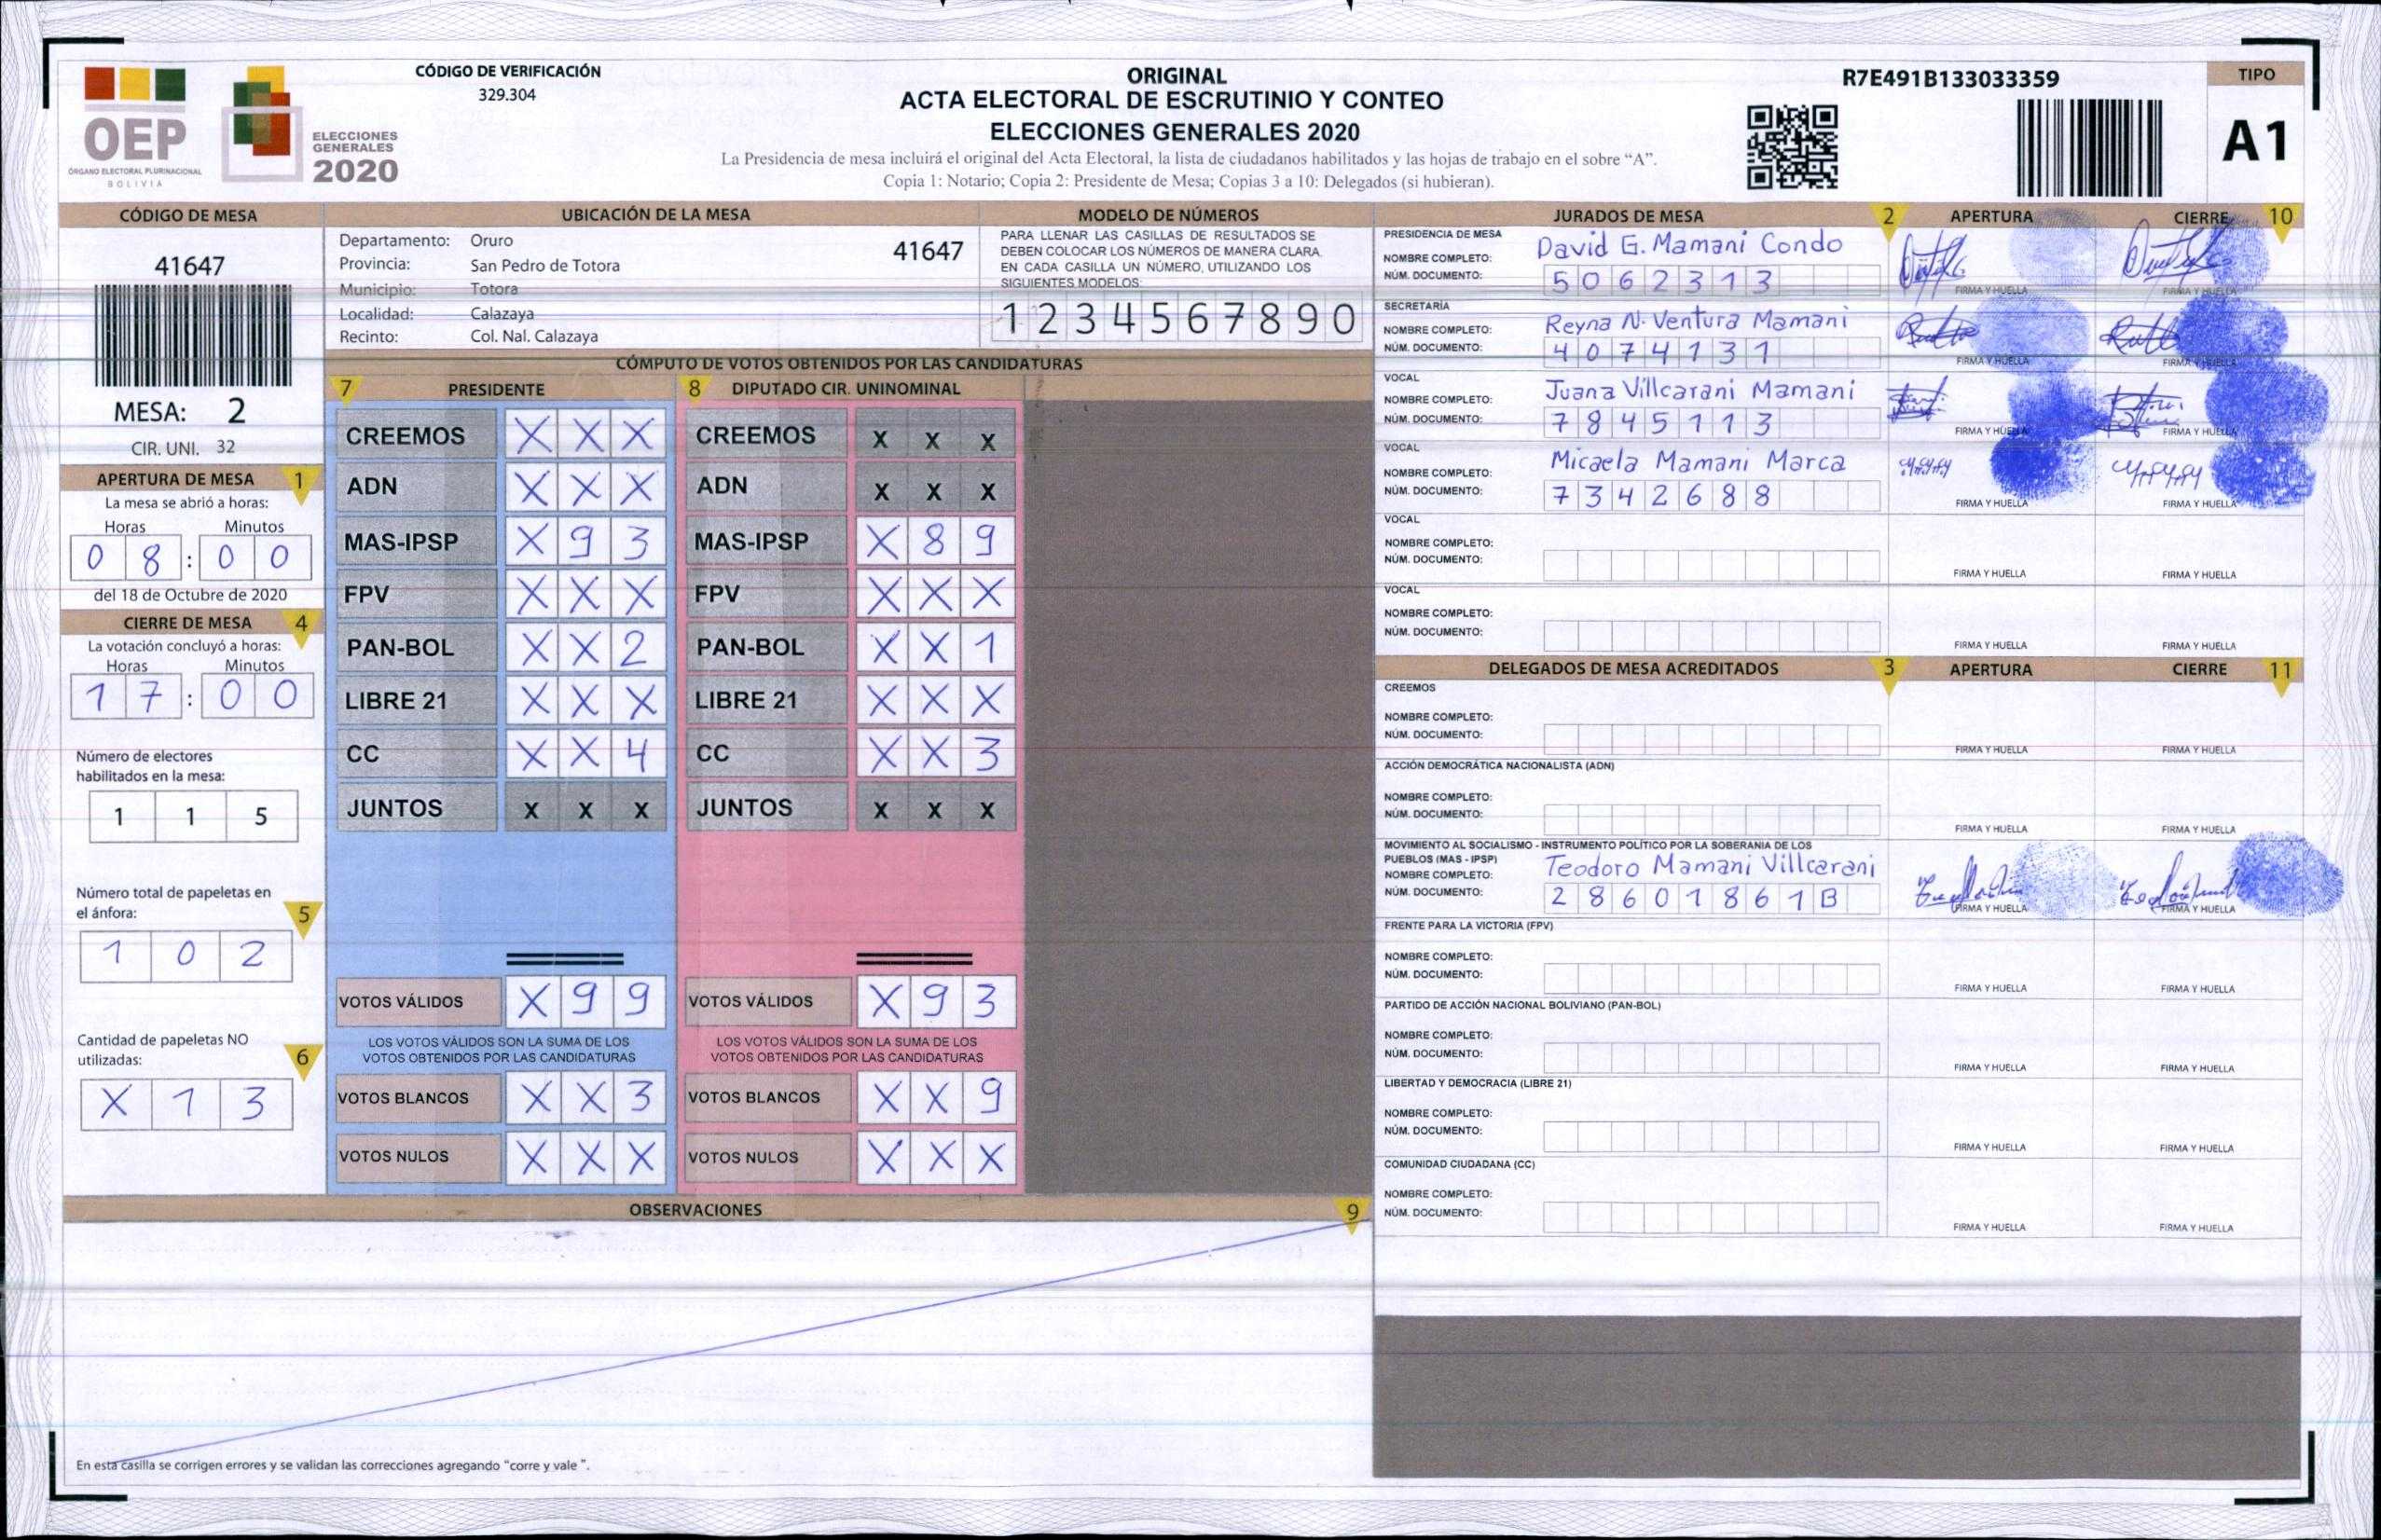 CÓDIGO DE VERIFICACIÓN
329.304
OEP
ÓRGANO ELECTORAL PLURINACIONAL
BOLIVIA
ELECCIONES
GENERALES
2020
ORIGINAL
ACTA ELECTORAL DE ESCRUTINIO Y CONTEO
ELECCIONES GENERALES 2020
La Presidencia de mesa incluirá el original del Acta Electoral, la lista de ciudadanos habilitados y las hojas de trabajo en el sobre “A”.
Copia 1: Notario; Copia 2: Presidente de Mesa; Copias 3 a 10: Delegados (si hubieran).
R7E491B133033359
TIPO
A1
CÓDIGO DE MESA
41647
MESA: 2
CIR. UNI. 32
APERTURA DE MESA 1
La mesa se abrió a horas:
Horas Minutos
0 8 : 0 0
del 18 de Octubre de 2020
CIERRE DE MESA 4
La votación concluyó a horas:
Horas Minutos
1 7 : 0 0
Número de electores
habilitados en la mesa:
1 1 5
Número total de papeletas en
el ánfora:
5
1 0 2
Cantidad de papeletas NO
utilizadas:
6
X 1 3
UBICACIÓN DE LA MESA
Departamento: Oruro
41647
Provincia: San Pedro de Totora
Municipio: Totora
Localidad: Calazaya
Recinto: Col. Nal. Calazaya
MODELO DE NÚMEROS
PARA LLENAR LAS CASILLAS DE RESULTADOS SE
DEBEN COLOCAR LOS NÚMEROS DE MANERA CLARA.
EN CADA CASILLA UN NÚMERO, UTILIZANDO LOS
SIGUIENTES MODELOS:
1 2 3 4 5 6 7 8 9 0
CÓMPUTO DE VOTOS OBTENIDOS POR LAS CANDIDATURAS
7 PRESIDENTE 8 DIPUTADO CIR. UNINOMINAL
CREEMOS X X X CREEMOS X X X
ADN X X X ADN X X X
MAS-IPSP X 9 3 MAS-IPSP X 8 9
FPV X X X FPV X X X
PAN-BOL X X 2 PAN-BOL X X 1
LIBRE 21 X X X LIBRE 21 X X X
CC X X 4 CC X X 3
JUNTOS X X X JUNTOS X X X
VOTOS VÁLIDOS X 9 9 VOTOS VÁLIDOS X 9 3
LOS VOTOS VÁLIDOS SON LA SUMA DE LOS LOS VOTOS VÁLIDOS SON LA SUMA DE LOS
VOTOS OBTENIDOS POR LAS CANDIDATURAS VOTOS OBTENIDOS POR LAS CANDIDATURAS
VOTOS BLANCOS X X 3 VOTOS BLANCOS X X 9
VOTOS NULOS X X X VOTOS NULOS X X X
OBSERVACIONES 9
En esta casilla se corrigen errores y se validan las correcciones agregando “corre y vale ”.
JURADOS DE MESA 2 APERTURA CIERRE 10
PRESIDENCIA DE MESA
NOMBRE COMPLETO: David G. Mamani Condo
NÚM. DOCUMENTO: 5 0 6 2 3 1 3
FIRMA Y HUELLA FIRMA Y HUELLA
SECRETARÍA
NOMBRE COMPLETO: Reyna N. Ventura Mamani
NÚM. DOCUMENTO: 4 0 7 4 1 3 1
FIRMA Y HUELLA FIRMA Y HUELLA
VOCAL
NOMBRE COMPLETO: Juana Villcarani Mamani
NÚM. DOCUMENTO: 7 8 4 5 1 1 3
FIRMA Y HUELLA FIRMA Y HUELLA
VOCAL
NOMBRE COMPLETO: Micaela Mamani Marca
NÚM. DOCUMENTO: 7 3 4 2 6 8 8
FIRMA Y HUELLA FIRMA Y HUELLA
VOCAL
NOMBRE COMPLETO:
NÚM. DOCUMENTO:
FIRMA Y HUELLA FIRMA Y HUELLA
VOCAL
NOMBRE COMPLETO:
NÚM. DOCUMENTO:
FIRMA Y HUELLA FIRMA Y HUELLA
DELEGADOS DE MESA ACREDITADOS 3 APERTURA CIERRE 11
CREEMOS
NOMBRE COMPLETO:
NÚM. DOCUMENTO:
FIRMA Y HUELLA FIRMA Y HUELLA
ACCIÓN DEMOCRÁTICA NACIONALISTA (ADN)
NOMBRE COMPLETO:
NÚM. DOCUMENTO:
FIRMA Y HUELLA FIRMA Y HUELLA
MOVIMIENTO AL SOCIALISMO - INSTRUMENTO POLÍTICO POR LA SOBERANIA DE LOS
PUEBLOS (MAS - IPSP)
NOMBRE COMPLETO: Teodoro Mamani Villcarani
NÚM. DOCUMENTO: 2 8 6 0 1 8 6 1 B
FIRMA Y HUELLA FIRMA Y HUELLA
FRENTE PARA LA VICTORIA (FPV)
NOMBRE COMPLETO:
NÚM. DOCUMENTO:
FIRMA Y HUELLA FIRMA Y HUELLA
PARTIDO DE ACCIÓN NACIONAL BOLIVIANO (PAN-BOL)
NOMBRE COMPLETO:
NÚM. DOCUMENTO:
FIRMA Y HUELLA FIRMA Y HUELLA
LIBERTAD Y DEMOCRACIA (LIBRE 21)
NOMBRE COMPLETO:
NÚM. DOCUMENTO:
FIRMA Y HUELLA FIRMA Y HUELLA
COMUNIDAD CIUDADANA (CC)
NOMBRE COMPLETO:
NÚM. DOCUMENTO:
FIRMA Y HUELLA FIRMA Y HUELLA